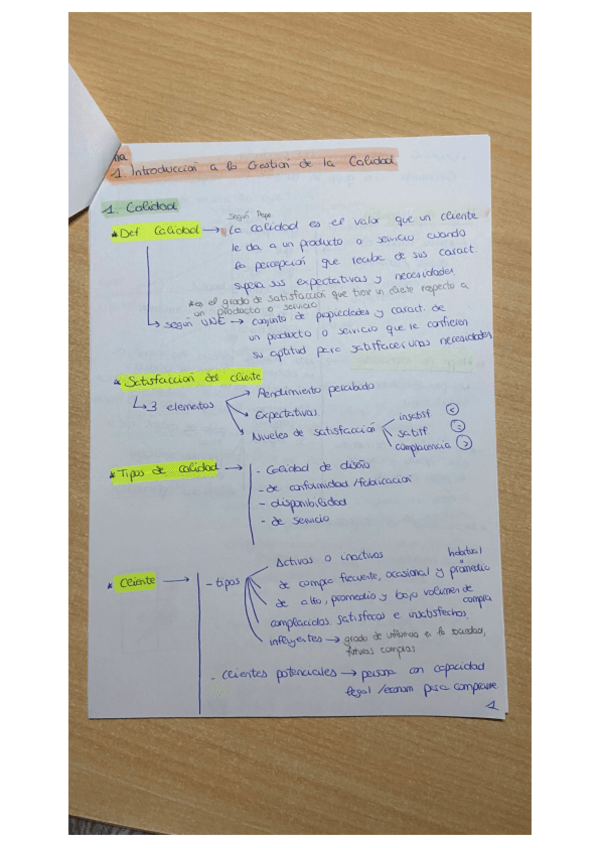 ma
1. Introducción a la Gestión de la Calidad
1. Calidad
* Def Calidad → La calidad es el valor que un cliente
Según Pepe
le da a un producto o servicio cuando
la percepción que recibe de sus caract.
supera sus expectativas y necesidades
* es el grado de satisfacción que tiene un cliente respecto a
un producto o servicio
↳ según UNE → conjunto de propiedades y caract. de
un producto o servicio que le confieren
su aptitud para satisfacer unas necesidades
* Satisfacción del cliente
↳ 3 elementos
Rendimiento percibido
Expectativas
Niveles de satisfacción
insatisf <
satisf =
complacencia >
* Tipos de calidad → - Calidad de diseño
- de conformidad / fabricación
- disponibilidad
- de servicio
* Cliente → - tipos
Activos o inactivos
habitual
de compra frecuente, ocasional y promedio
de alto, promedio y bajo volumen de compra
complacidos, satisfechos e insatisfechos,
influyentes → grado de influencia en la sociedad,
futuras compras
- Clientes potenciales → persona con capacidad
legal / econom para comprarme
1